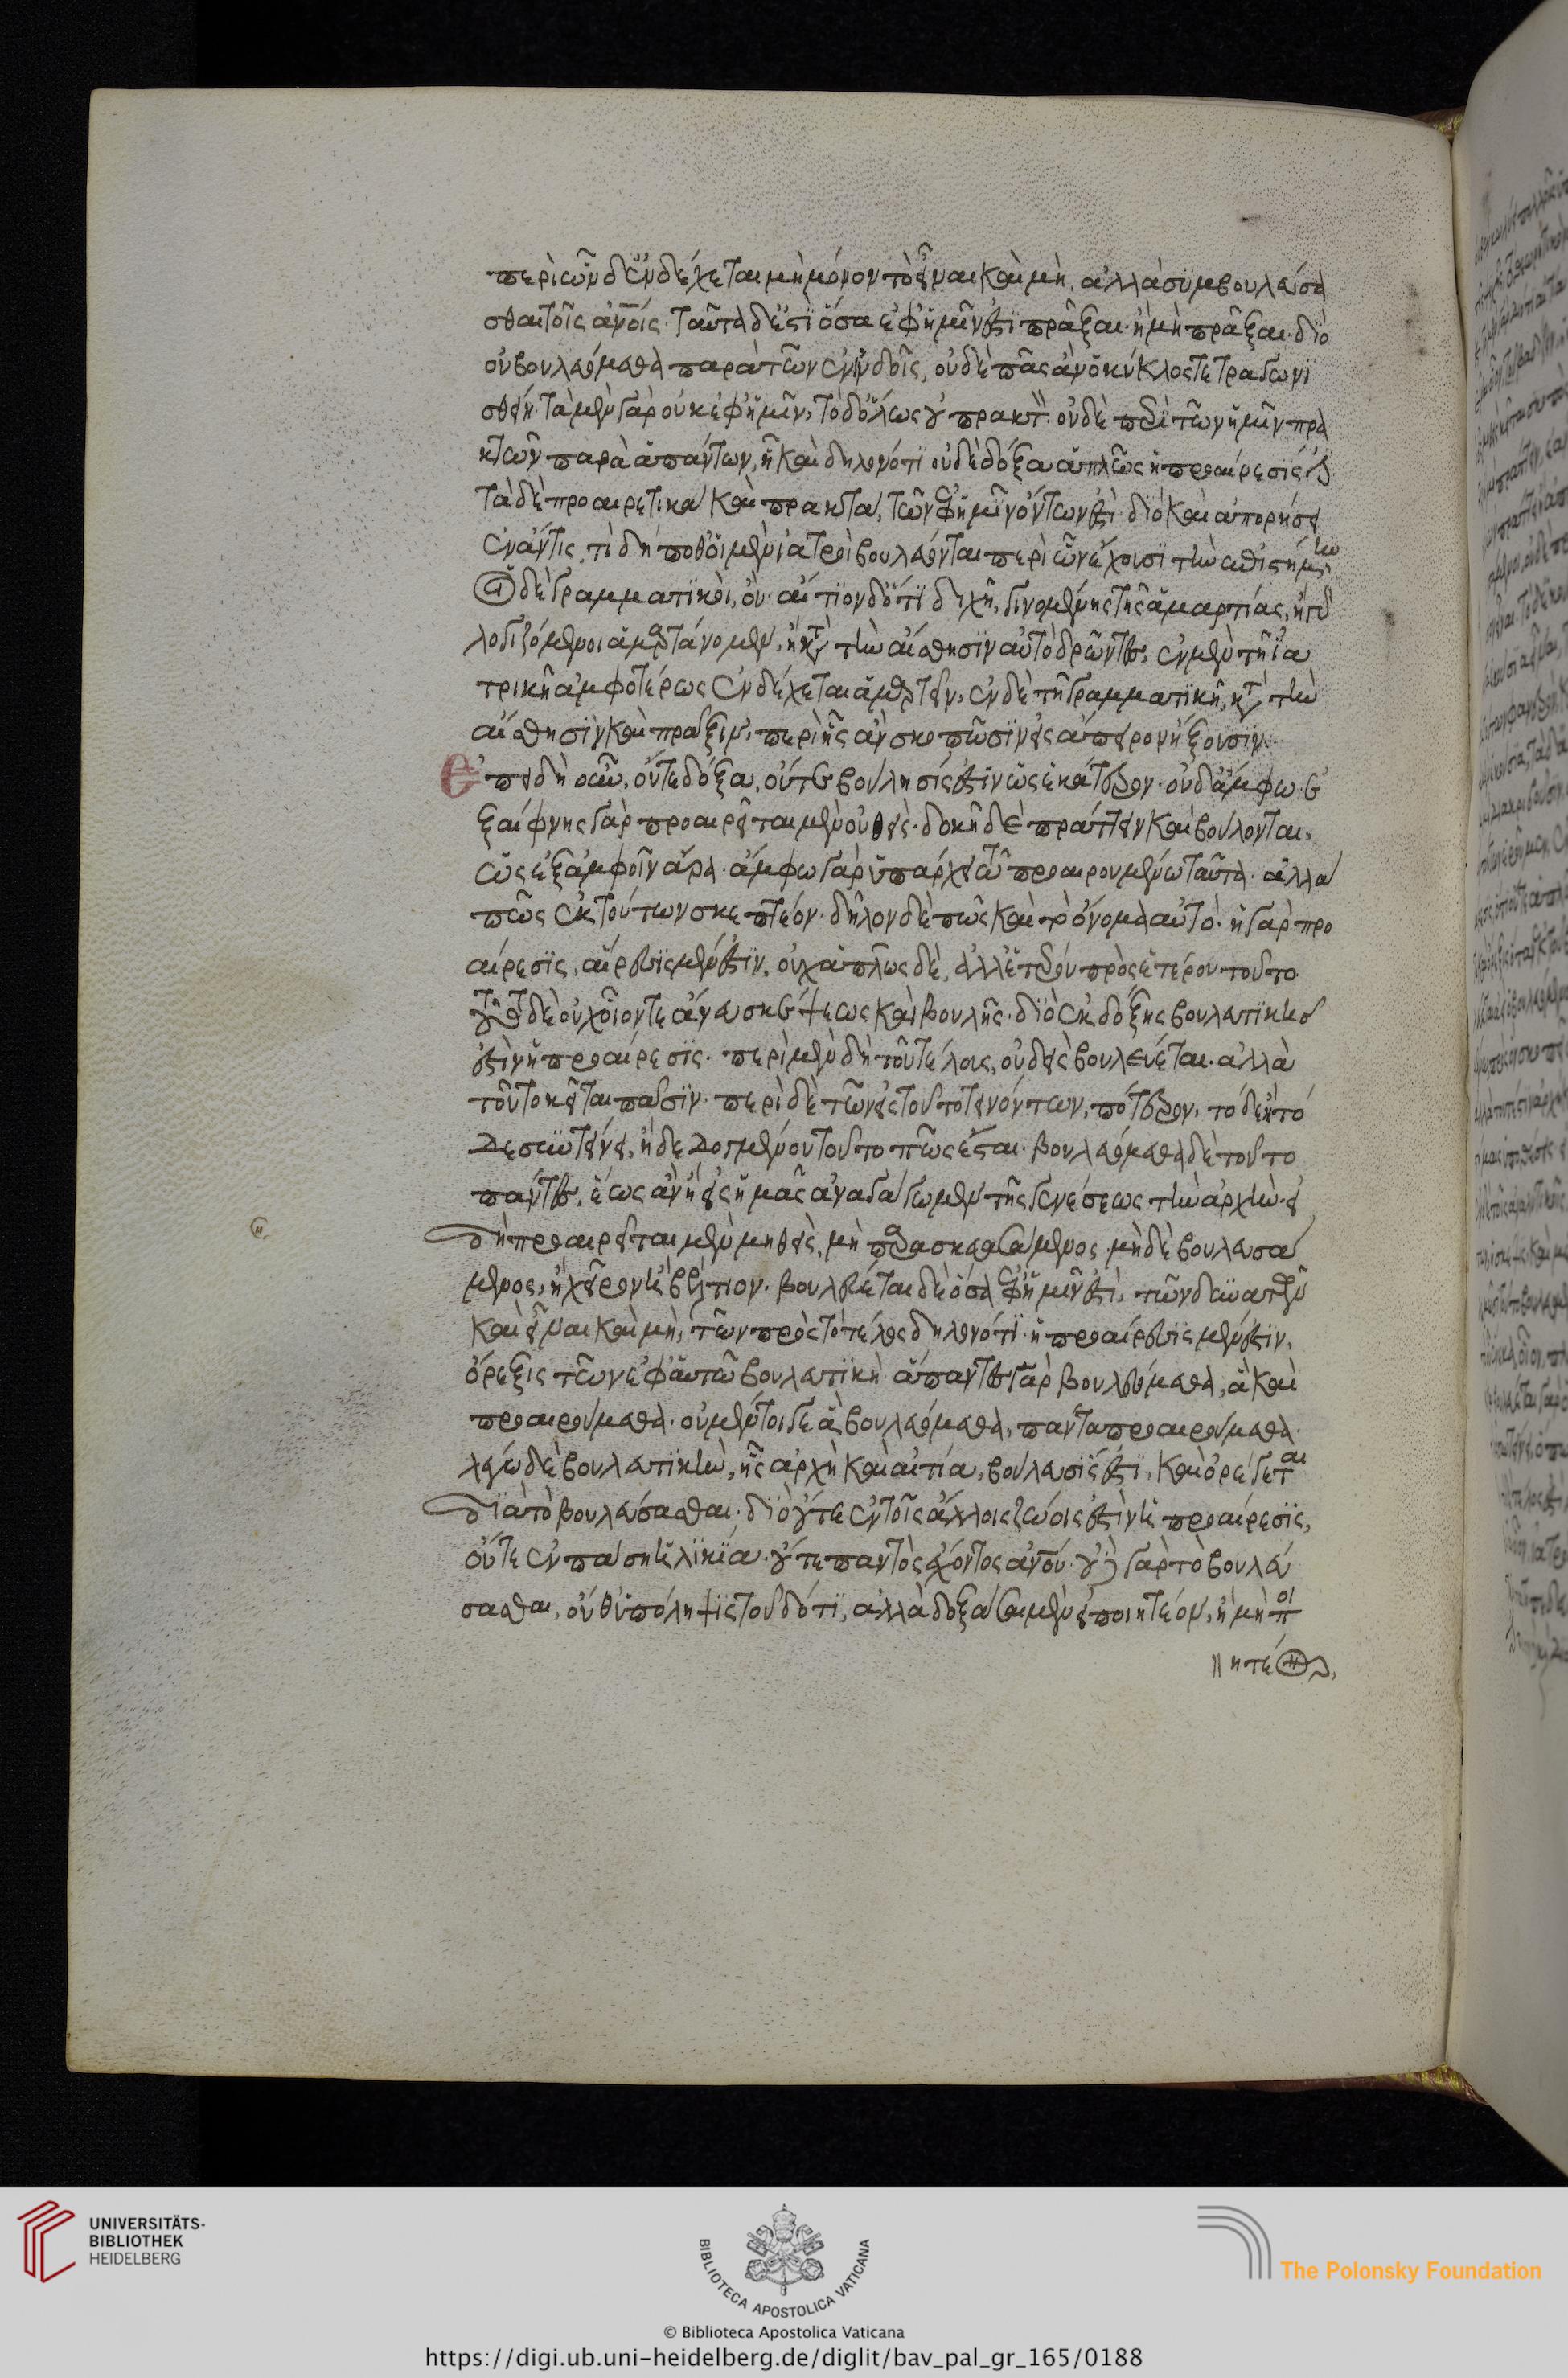 περὶ ὧν δ' ἐνδέχεται μὴ μόνον τὸ εἶναι καὶ μὴ, ἀλλὰ συμβουλεύσα
σθαι τοῖς ἀνοις· ταῦτα δέ ἐστι ὅσα ἐφ' ἡμῖν ἐστι πρᾶξαι· ἢ μὴ πρᾶξαι· διὸ
οὐ βουλευόμεθα παρὰ τῶν ἐν ἰνδοῖς, οὐδὲ πῶς ἂν ὁ κύκλος τετραγωνι
σθείη· τὰ μὲν γὰρ οὐκ ἐφ' ἡμῖν, τὸ δ' ὅλως οὐ πρακτ· οὐδὲ περὶ τῶν ἡμῖν πρα
κτῶν παρὰ ἁπάντων, ἧ καὶ δηλονότι οὐδὲ δόξα ἁπλῶς ἡ προαίρεσίς ἐστι
τὰ δὲ προαιρετικὰ καὶ πρακτὰ, τῶν ἐφ' ἡμῖν ὄντων ἐστὶ· διὸ καὶ ἀπορήσει
εν ἄντις, τί δή ποθ' οἱ μὲν ἰατροὶ βουλεύονται περὶ ὧν ἔχουσι τὴν ἐπιστήμην
οἱ δὲ γραμματικοὶ, οὐ· αἴτιον δ' ὅτι διχῆ, γινομένης τῆς ἁμαρτίας, ἢ γὰρ
λογιζόμενοι ἁμαρτάνομεν, ἢ κατὰ τὴν αἴσθησιν αὐτὸ δρῶντες, ἐν μὲν τῆ ἰα
τρικῆ ἀμφοτέρως ἐνδέχεται ἁμαρτεῖν, ἐν δὲ τῆ γραμματικῆ, κατὰ τὴν
αἴσθησιν καὶ πρᾶξιν, περὶ ἧς ἂν σκοπῶσιν εἰς ἄπειρον ἥξουσιν·
Ἐπειδὴ οὖν, οὔτε δόξα, οὔτε βούλησίς ἐστιν ὡς ἑκάτερον· οὐδ' ἄμφω· ἐ
ξαίφνης γὰρ προαιρεῖται μὲν οὐθεὶς· δοκῆ δὲ πράττειν καὶ βούλονται,
ὡς ἐξ ἀμφοῖν ἄρα· ἄμφω γὰρ ὑπάρχει τῶ προαιρουμένω ταῦτα· ἀλλὰ
πῶς ἐκ τούτων σκεπτέον· δῆλον δὲ πῶς καὶ τὸ ὄνομα αὐτὸ· ἡ γὰρ προ
αίρεσις, αἵρεσις μέν ἐστιν, οὐχ ἁπλῶς δὲ, ἀλλ' ἑτέρου πρὸς ἑτέρου· τοῦτο
δὲ οὐχ οἷόντε ἄνευ σκέψεως καὶ βουλῆς· διὸ ἐκ δόξης βουλευτικῆς
ἐστὶν ἡ προαίρεσις· περὶ μὲν δὴ τοῦ τέλους, οὐδεὶς βουλεύεται· ἀλλὰ
τοῦτο κεῖται πᾶσιν· περὶ δὲ τῶν εἰς τοῦτο τεινόντων, πότερον, τὸ δὲ ἢ τό
δε συντείνει, ἢ δεδογμένον τοῦτο πῶς ἔσται· βουλευόμεθα δὲ τοῦτο
πάντες, ἕως ἂν ἢ εἰς ἡμᾶς ἀναγάγωμεν τῆς γενέσεως τὴν ἀρχὴν· εἰ
δὴ προαιρεῖται μὲν μηθεὶς, μὴ παρασκευασάμενος· μὴ δὲ βουλευσά
μενος, ἢ χεῖρον ἢ βέλτιον· βουλεύεται δὲ ὅσα ἐφ' ἡμῖν ἐστὶ, τῶν δυνατῶν
καὶ εἶναι καὶ μὴ, τῶν πρὸς τὸ τέλος δηλονότι· ἡ προαίρεσις μέν ἐστιν,
ὄρεξις τῶν ἐφ' αὑτῶ βουλευτικὴ· ἅπαντες γὰρ βουλευόμεθα, ἃ καὶ
προαιρούμεθα· οὐ μέντοι γε ἃ βουλευόμεθα, πάντα προαιρούμεθα·
λέγω δὲ βουλευτικὴν, ἧς ἀρχὴ καὶ αἰτία, βούλευσίς ἐστι, καὶ ὀρέγεται
διὰ τὸ βουλεύσασθαι· διὸ οὔτε ἐν τοῖς ἄλλοις ζώοις ἐστὶν ἡ προαίρεσις,
οὔτε ἐν πάση ἡλικία· οὔτε παντὸς ἔχοντος ἀνου· οὐδὲ γὰρ τὸ βουλεύ
σασθαι, οὐθ' ὑπόληψις τοῦ διότι, ἀλλὰ δοξάσαι μὲν εἰ ποιητέον, ἢ μὴ ποι
ητέον,
UNIVERSITÄTS-
BIBLIOTHEK
HEIDELBERG
BIBLIOTECA APOSTOLICA VATICANA
© Biblioteca Apostolica Vaticana
The Polonsky Foundation
https://digi.ub.uni-heidelberg.de/diglit/bav_pal_gr_165/0188